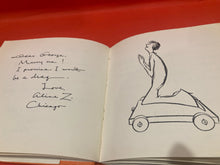 Dear George,
Marry me!
I promise I won't
be a drag.
Love,
Alice Z.
Chicago